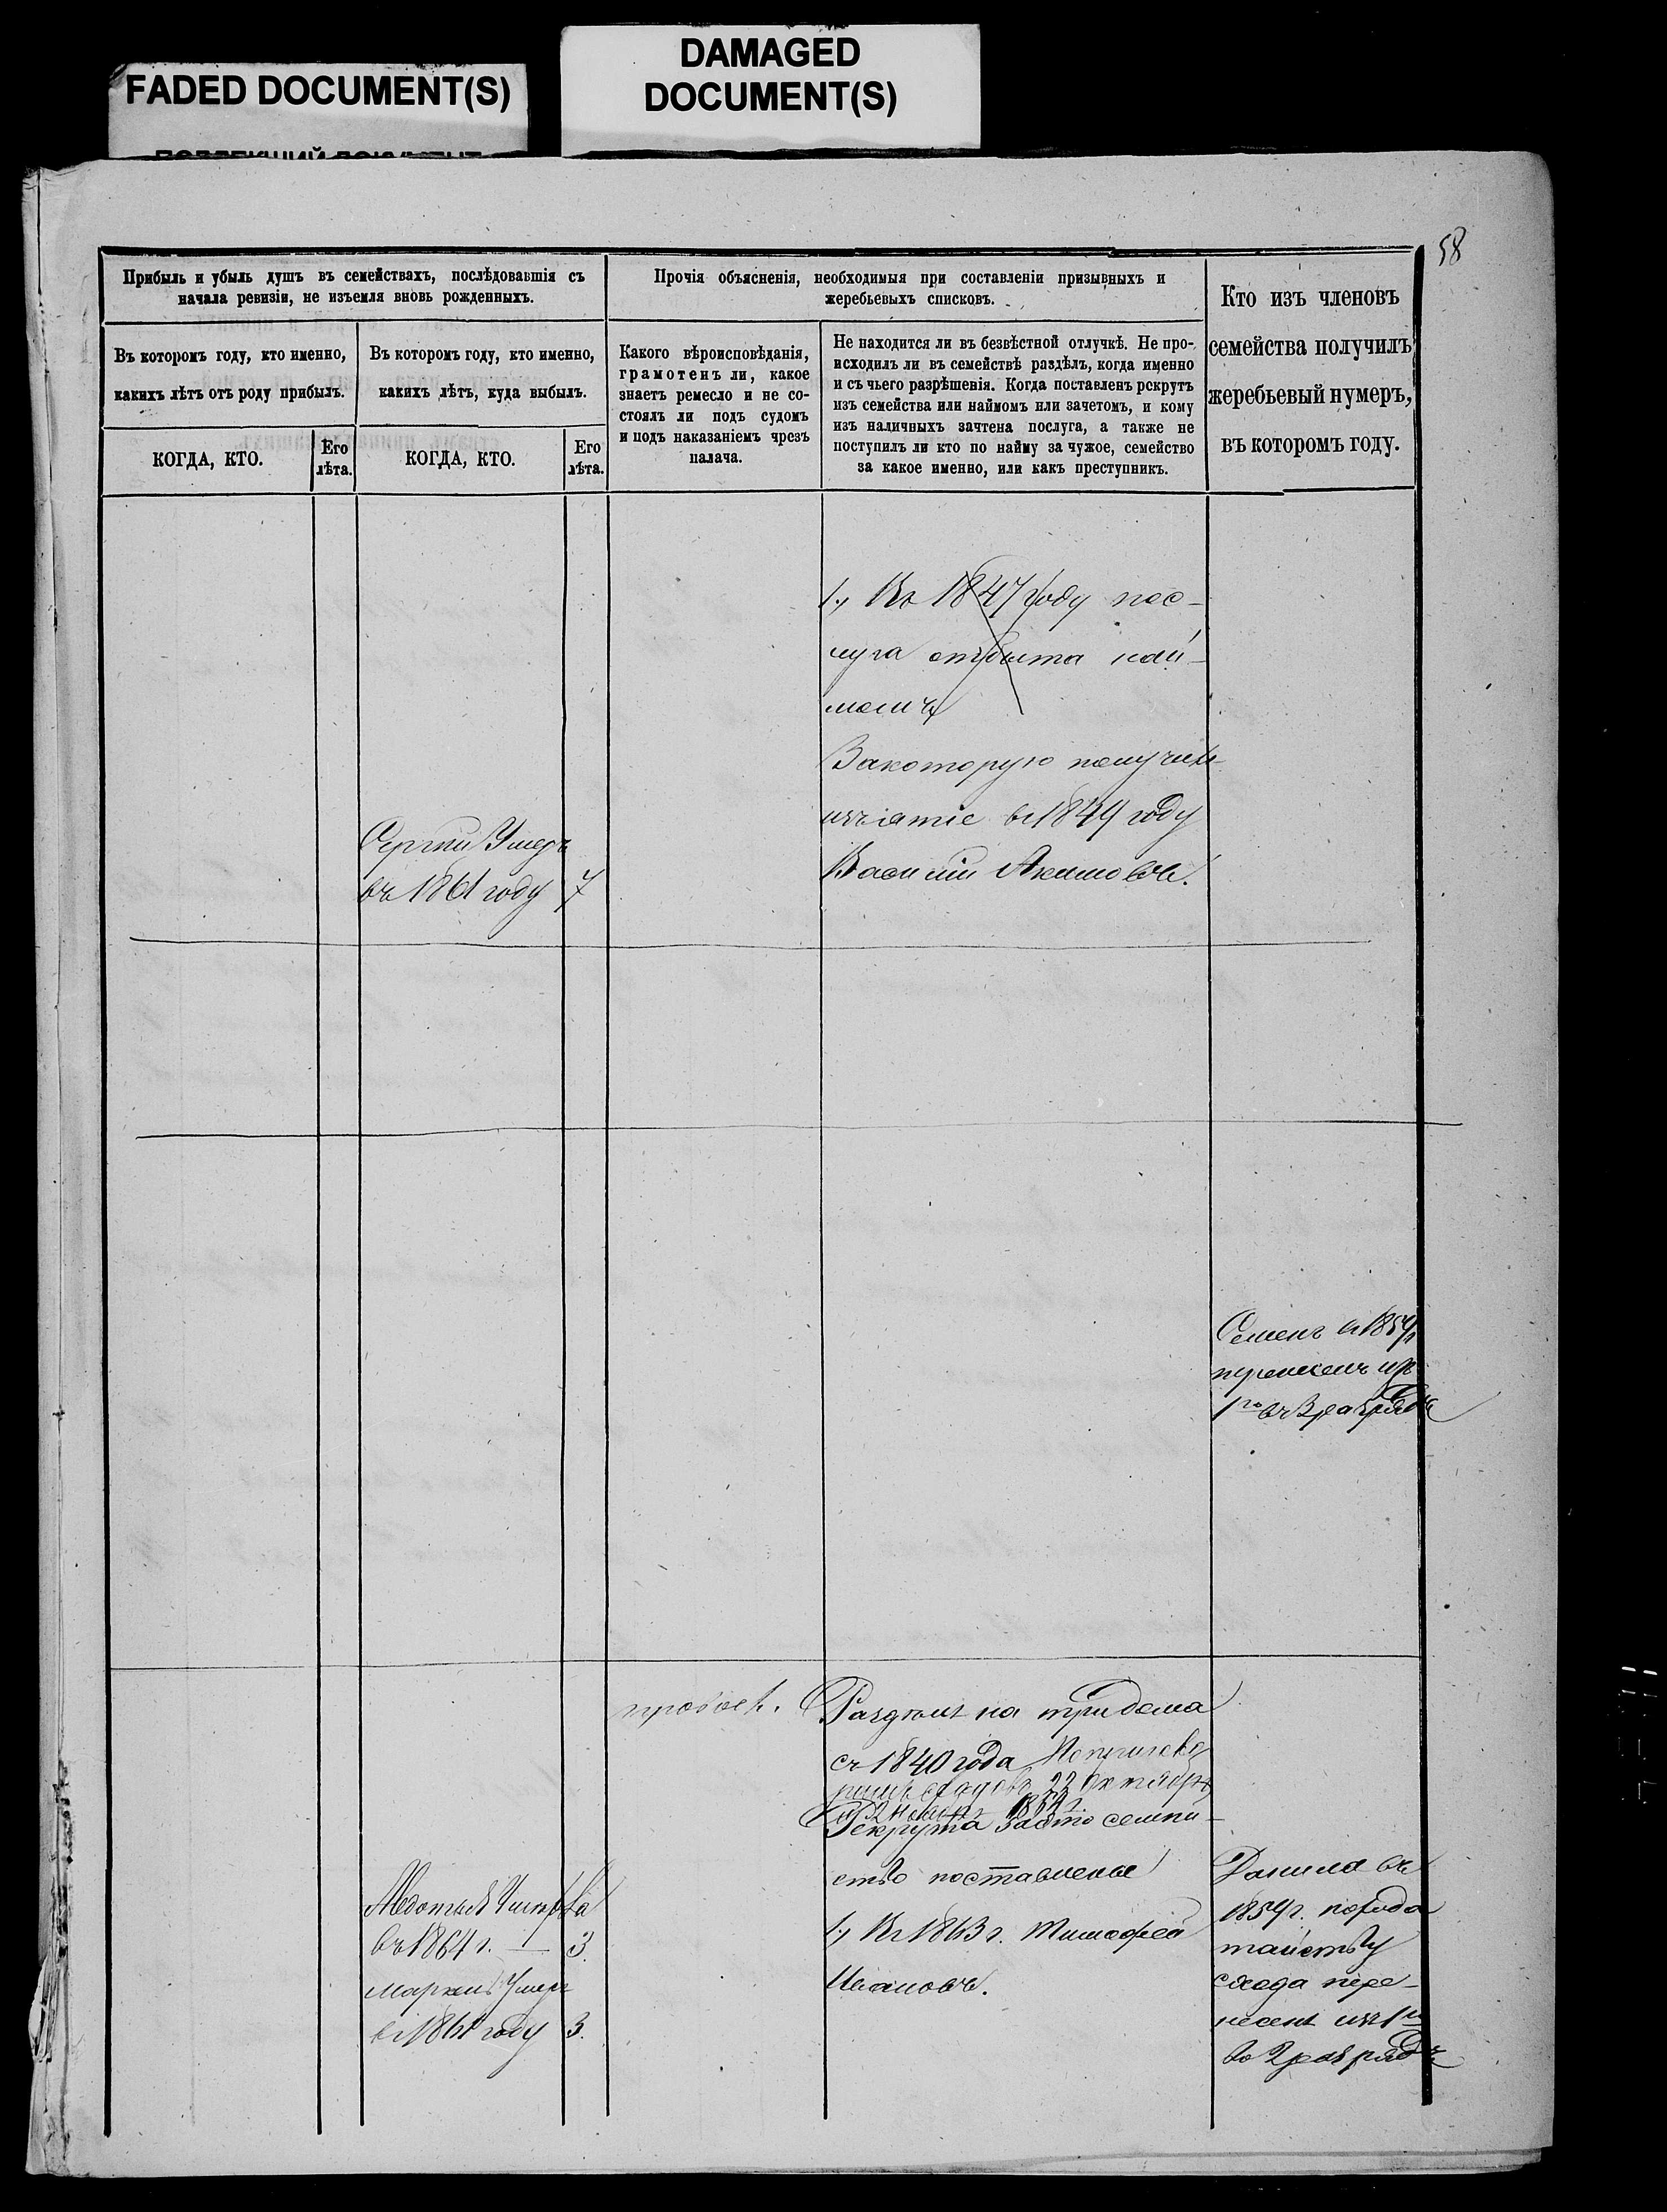 FADED DOCUMENT(S)
DAMAGED
DOCUMENT(S)
58
Прибыль и убыль душъ въ семействахъ, послѣдовавшія съ
начала ревизіи, не изъемля вновь рожденныхъ.
Прочія объясненія, необходимыя при составленіи призывныхъ и
жеребьевыхъ списковъ.
Кто изъ членовъ
семейства получилъ
жеребьевый нумеръ,
въ которомъ году.
Въ которомъ году, кто именно,
какихъ лѣтъ отъ роду прибылъ.
Въ которомъ году, кто именно,
какихъ лѣтъ, куда выбылъ.
Какого вѣроисповѣданія,
грамотенъ ли, какое
знаетъ ремесло и не со-
стоялъ ли подъ судомъ
и подъ наказаніемъ чрезъ
палача.
Не находится ли въ безвѣстной отлучкѣ. Не про-
исходилъ ли въ семействѣ раздѣлъ, когда именно
и съ чьего разрѣшенія. Когда поставленъ рекрутъ
изъ семейства или наймомъ или зачетомъ, и кому
изъ наличныхъ зачтена послуга, а также не
поступилъ ли кто по найму за чужое, семейство
за какое именно, или какъ преступникъ.
КОГДА, КТО.
Его
лѣта.
КОГДА, КТО.
Его
лѣта.
1., Въ 1847 году пос-
луга отбыта най-
момъ
За которую получилъ
изъятіе въ 1849 году
Василій Акимовъ.
Сергѣй Умеръ
въ 1861 году 7
Семенъ въ 1859 г.
перенесенъ изъ
1го въ 3 разрядъ
правосл.
Раздѣлъ на три дома
съ 1840 года
22 Октября
1864 г.
Рекрута за это семей-
ство поставлены
1., Въ 1863 г. Тимофей
Ивановъ.
Умерла
въ 1864 г. — 3.
Умеръ
въ 1861 году 3.
Данила въ
1859 г. по хода
тайству
схода пере-
несенъ изъ 1го
во 2 разрядъ